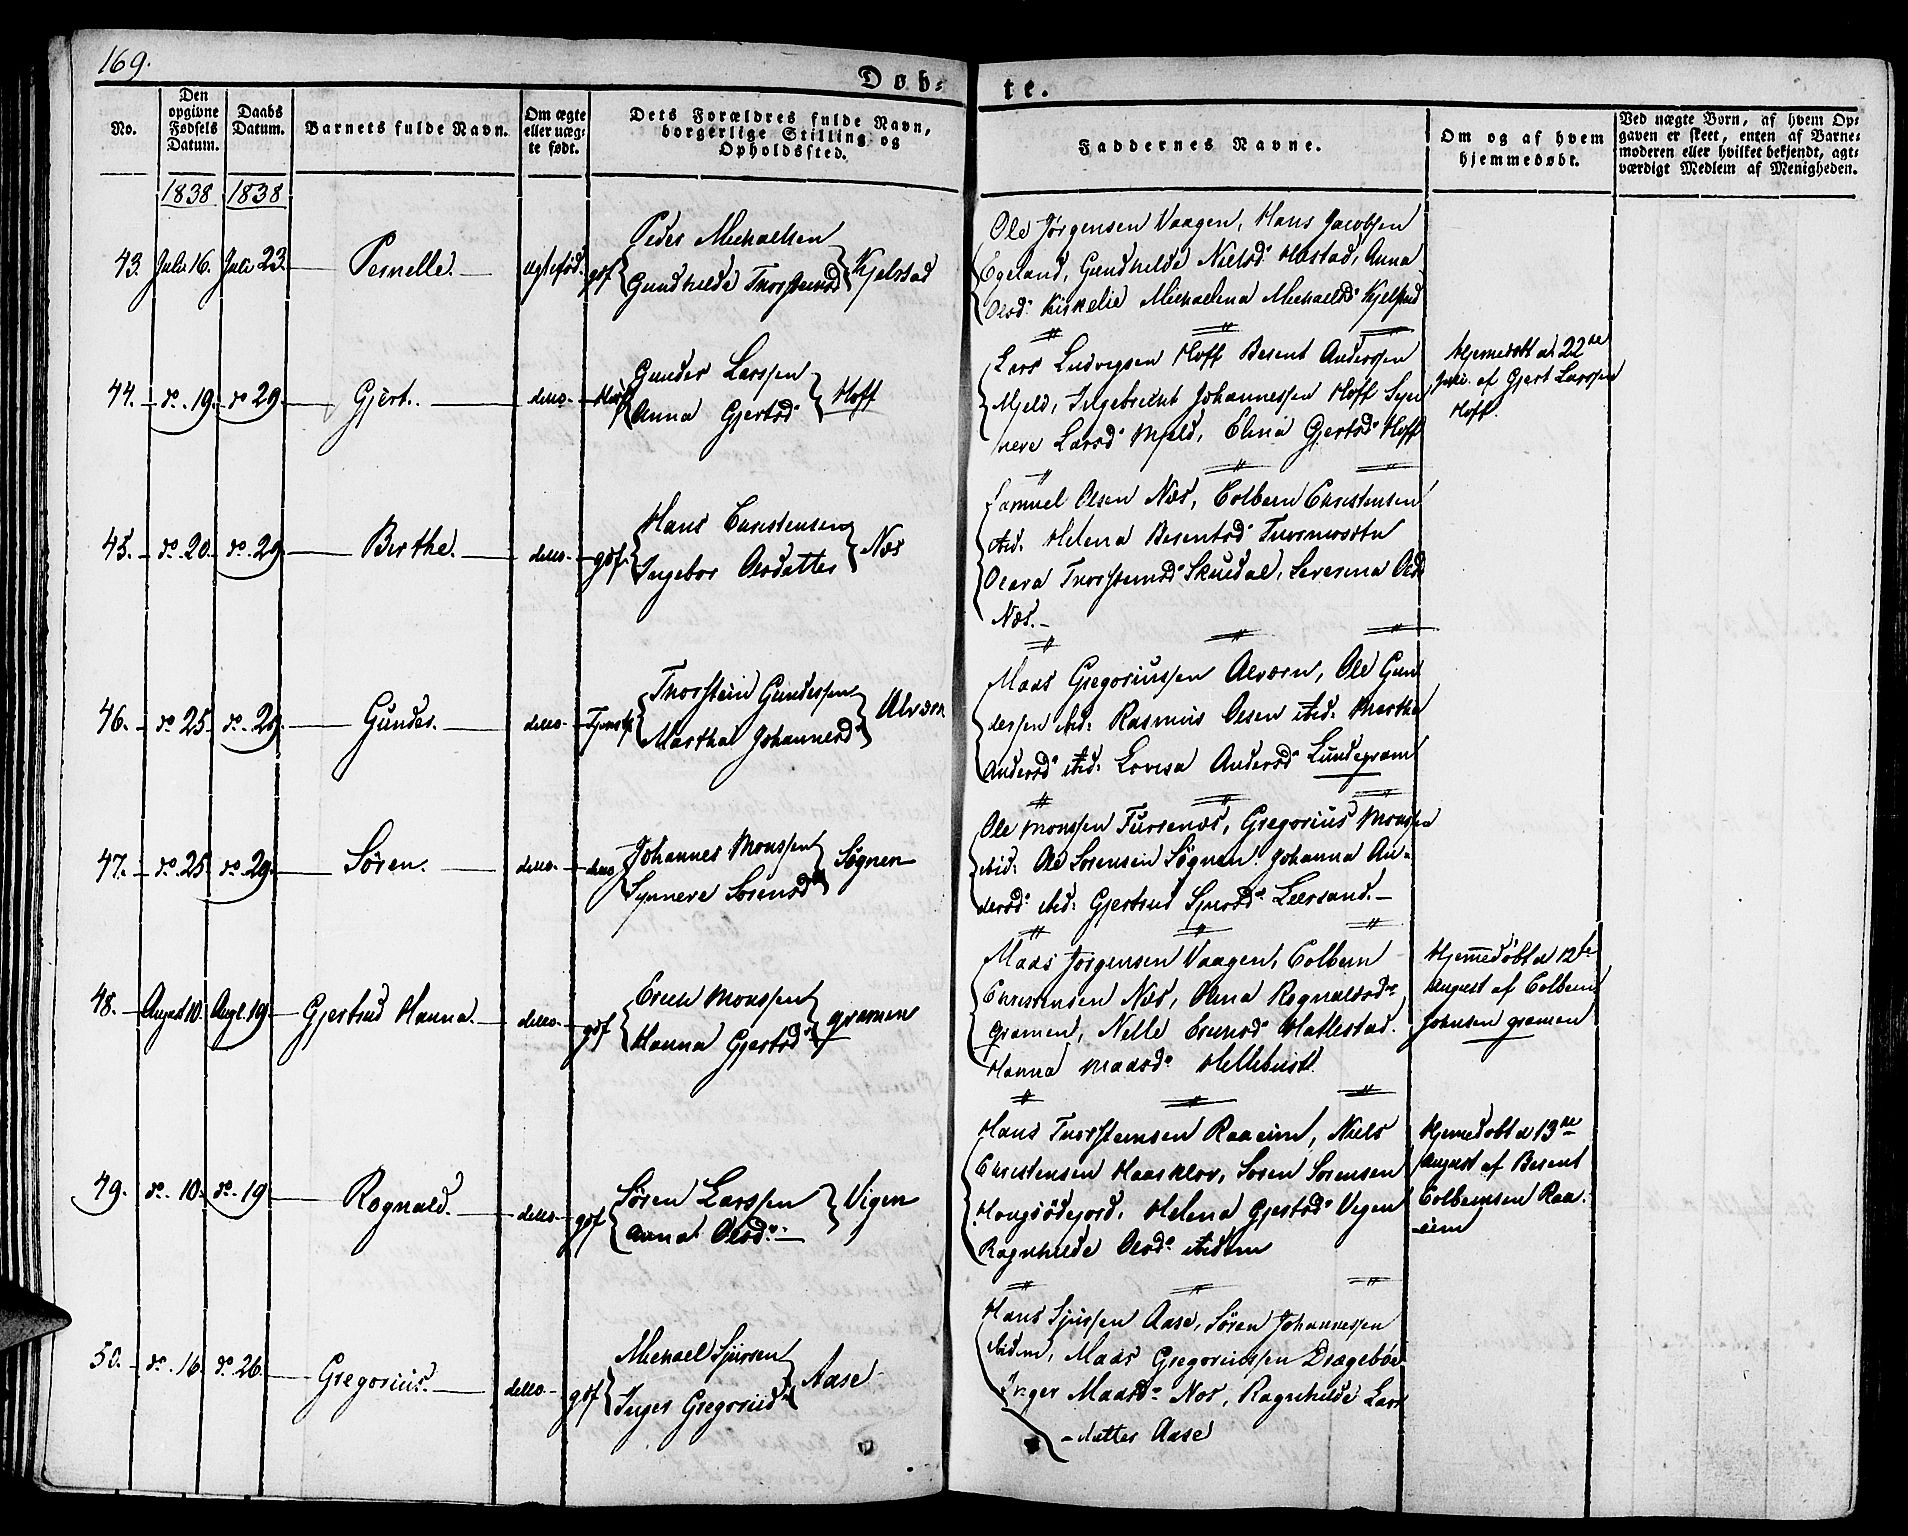 169.
Døb-
te.
No.
Den opgivne Fødsels Datum.
Daabs Datum.
Barnets fulde Navn.
Om ægte eller uægte født.
Dets Forældres fulde Navn, borgerlige Stilling og Opholdssted.
Faddernes Navne.
Om og af hvem hjemmedøbt.
Ved uægte Born, af hvem Op-
gaven er skeet, enten af Barne-
moderen eller hvilket bekjendt, agt-
værdigt Medlem af Menigheden.
1838 1838
43. Juli 16. Juli 23. Pernelle. ægtefød. gdf
Peder Michaelsen
Gundhilde Thorsteinsd Kjelstad
Ole Jørgensen Vaagen, Hans Jacobsen
Egeland, Gundhilde Nielsd: Hestad, Anna
Olsd: Kirkelie Michaelina Michaelsd:
44. do. 19. do 29. Gjert. detto
Gunder Larssen
Anna Gjertsd: Hoff
Lars Ludvigsen Hoff Berent Anderssen
Mjeld, Ingebricht Johannessen Hoff Syn
neve Larsd: Mjeld, Elina Gjertsd: Hoff
Hjemedøbt d. 22de
Juli af Gjert Larssen
Hoff.
45. do 20. do. 29. Berthe. detto. gdf.
Hans Christensen
Ingebor Olsdatter Næs
Samuel Olsen Næs, Colbein Christensen
ibid. Helena Berentsd:
Olava Thorsteinsd: Skuedal, Severina Olsd
Næs.
46. do 25. do. 29. Gunder. detto
Thorstein Gunderssen
Martha Johannesd: Alværn
Mads Gregoriussen Alværn, Ole Gun
derssen ibid: Rasmus Olsen ibid: Marthe
Andersd: ibid: Lovisa Andersd:
47. do 25. do 29. Søren. detto ditto
Johannes Monssen
Synneve Sørensd: Søgnen
Ole Monssen Fursenæs, Gregorius Monssen
ibid: Ole Sørensen Søgnen. Johanna An-
dersd: ibid: Gjertrud Sjursd: Leersand.
48. August 10. Augt. 19. Gjertrud Hanna. detto gdf
Erich Monssen
Hanna Gjertsd: Gramen
Mads Jørgensen Vaagen, Colbein
Christensen Næs, Olina Rognaldsd:
Gramen, Nille Erichsd: Hatlestad.
Hanna Madsd: Hellebust
Hjemmedøbt d 12te
August af Colbein
Johnsen Gramen
49. do. 10. do. 19. Rognald. detto gdf
Søren Larssen
Anna Olsd: Vigen
Hans Thorsteinsen Raaeim, Niels
Christensen Haasklov, Søren Sørensen
Helena Gjertsd: Vigen
Ragnhilde Olsd: ibidem
Hjemedøbt d 13de
August af Berent
Colbeinsen Raa-
eim
50. do. 16. do 26. Gregorius. detto gdf
Michael Sjursen
Inger Gregoriusd Aase
Hans Sjurssen Aase, Søren Johannessen
ibidem, Mads Gregoriussen Drageböe
Inger Madsd: Nos, Ragnhilde Lars
datter Aase